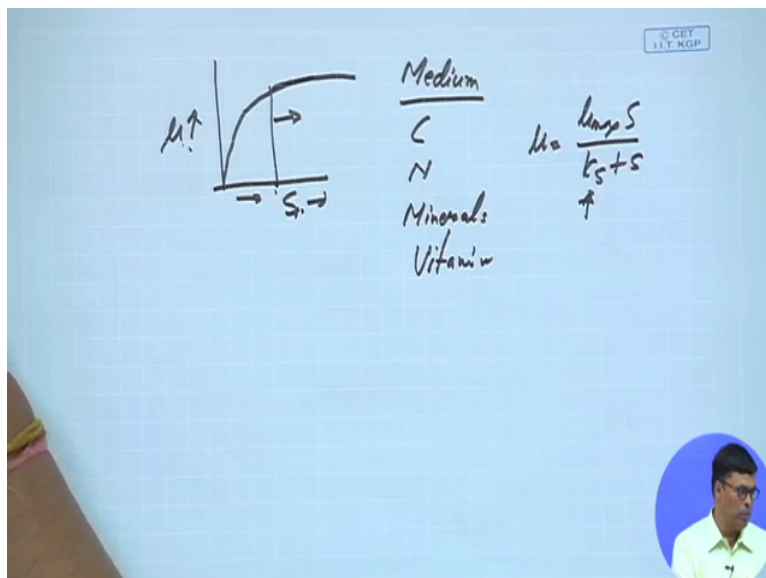 © CET
I.I.T. KGP
Medium
C
N
Minerals
Vitamin
μ
S
μ = μmax S
Ks + S